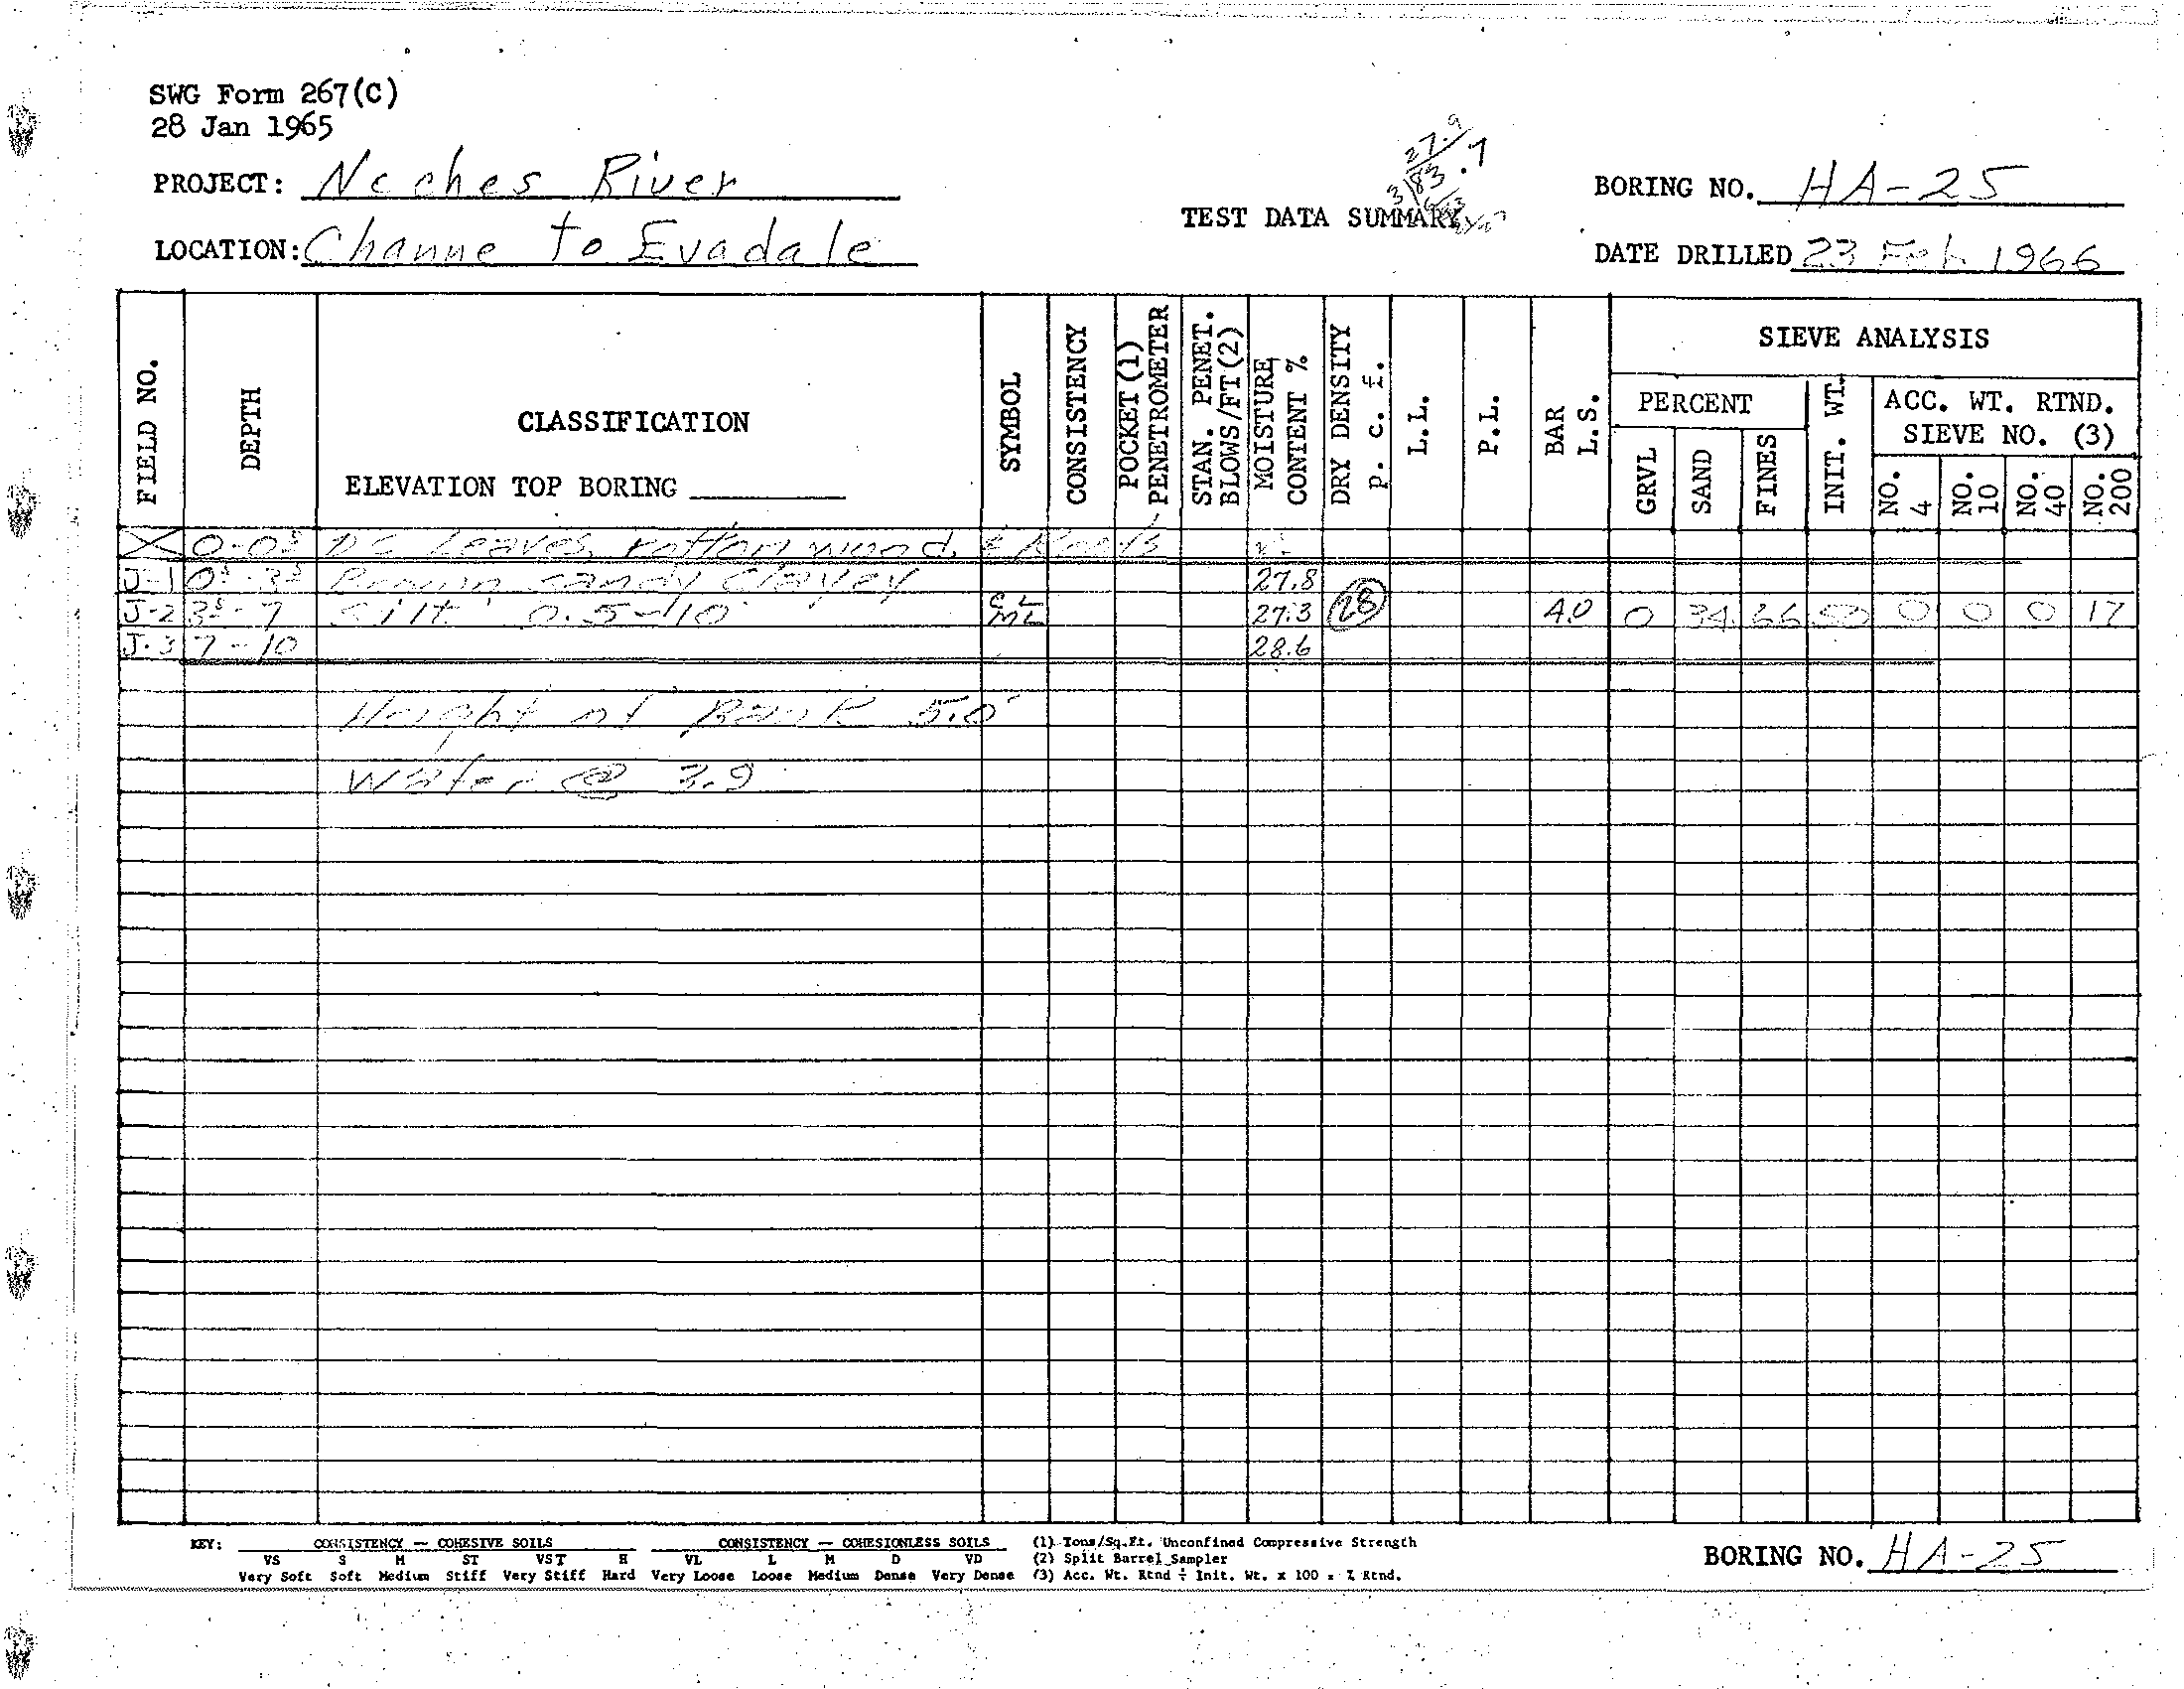 SWG Form 267(C)
28 Jan 1965
PROJECT: Neches River
LOCATION: Channe to Evadale
TEST DATA SUMMARY
27.9
3/83.7
BORING NO. HA-25
DATE DRILLED 23 Feb 1966
FIELD NO.
DEPTH
CLASSIFICATION
ELEVATION TOP BORING
SYMBOL
CONSISTENCY
POCKET (1)
PENETROMETER
STAN. PENET.
BLOWS/FT(2)
MOISTURE
CONTENT %
DRY DENSITY
p. c. f.
L.L.
P.L.
BAR
L.S.
SIEVE ANALYSIS
PERCENT
GRVL
SAND
FINES
INIT. WT.
ACC. WT. RTND.
SIEVE NO. (3)
NO. 4
NO. 10
NO. 40
NO. 200
X 0-0⁵ Leaves, rotten wood, & Roots
J-1 0⁵-3⁵ Brown sandy clayey 27.8
J-2 3⁵-7 silt 0.5-10 CL ML 27.3 (28) 4.0 0 34 66 50 0 0 0 17
J-3 7-10 28.6
Height of Bank 5.0'
Water @ 3.9
KEY: CONSISTENCY — COHESIVE SOILS CONSISTENCY — COHESIONLESS SOILS
VS S M ST VST H VL L M D VD
Very Soft Soft Medium Stiff Very Stiff Hard Very Loose Loose Medium Dense Very Dense
(1) Tons/Sq.Ft. Unconfined Compressive Strength
(2) Split Barrel Sampler
(3) Acc. Wt. Rtnd ÷ Init. Wt. x 100 = % Rtnd.
BORING NO. HA-25